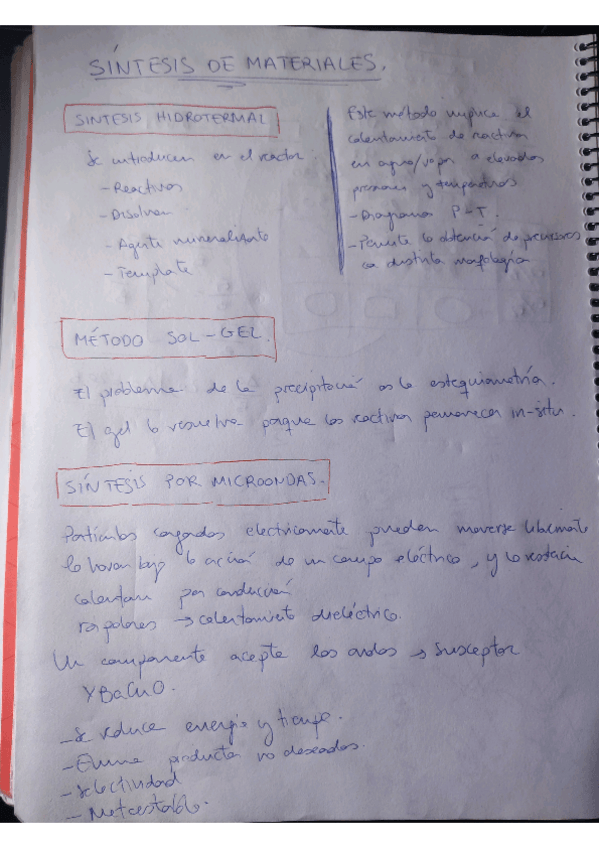 SÍNTESIS DE MATERIALES.
SINTESIS HIDROTERMAL
Se introducen en el reactor
- Reactivos
- Disolven
- Agente mineralizante
- Template
Este método implica el
calentamiento de reactivos
en agua/vapor a elevadas
presiones y temperaturas
- Diagrama P-T.
- Permite la obtención de precursores
con distinta morfología
MÉTODO SOL-GEL.
El problema de la precipitación es la estequiometría.
El gel lo resuelve porque los reactivos permanecen in-situ.
SÍNTESIS POR MICROONDAS.
Partículas cargadas electricamente pueden moverse libremente
lo harán bajo la acción de un campo eléctrico, y la
calentan por conducción
→ calentamiento dieléctrico.
Un componente acepte las ondas → Susceptor
YBaCuO.
- Se reduce energía y tiempo.
- productos no deseados.
- Selectividad
- Metaestable.